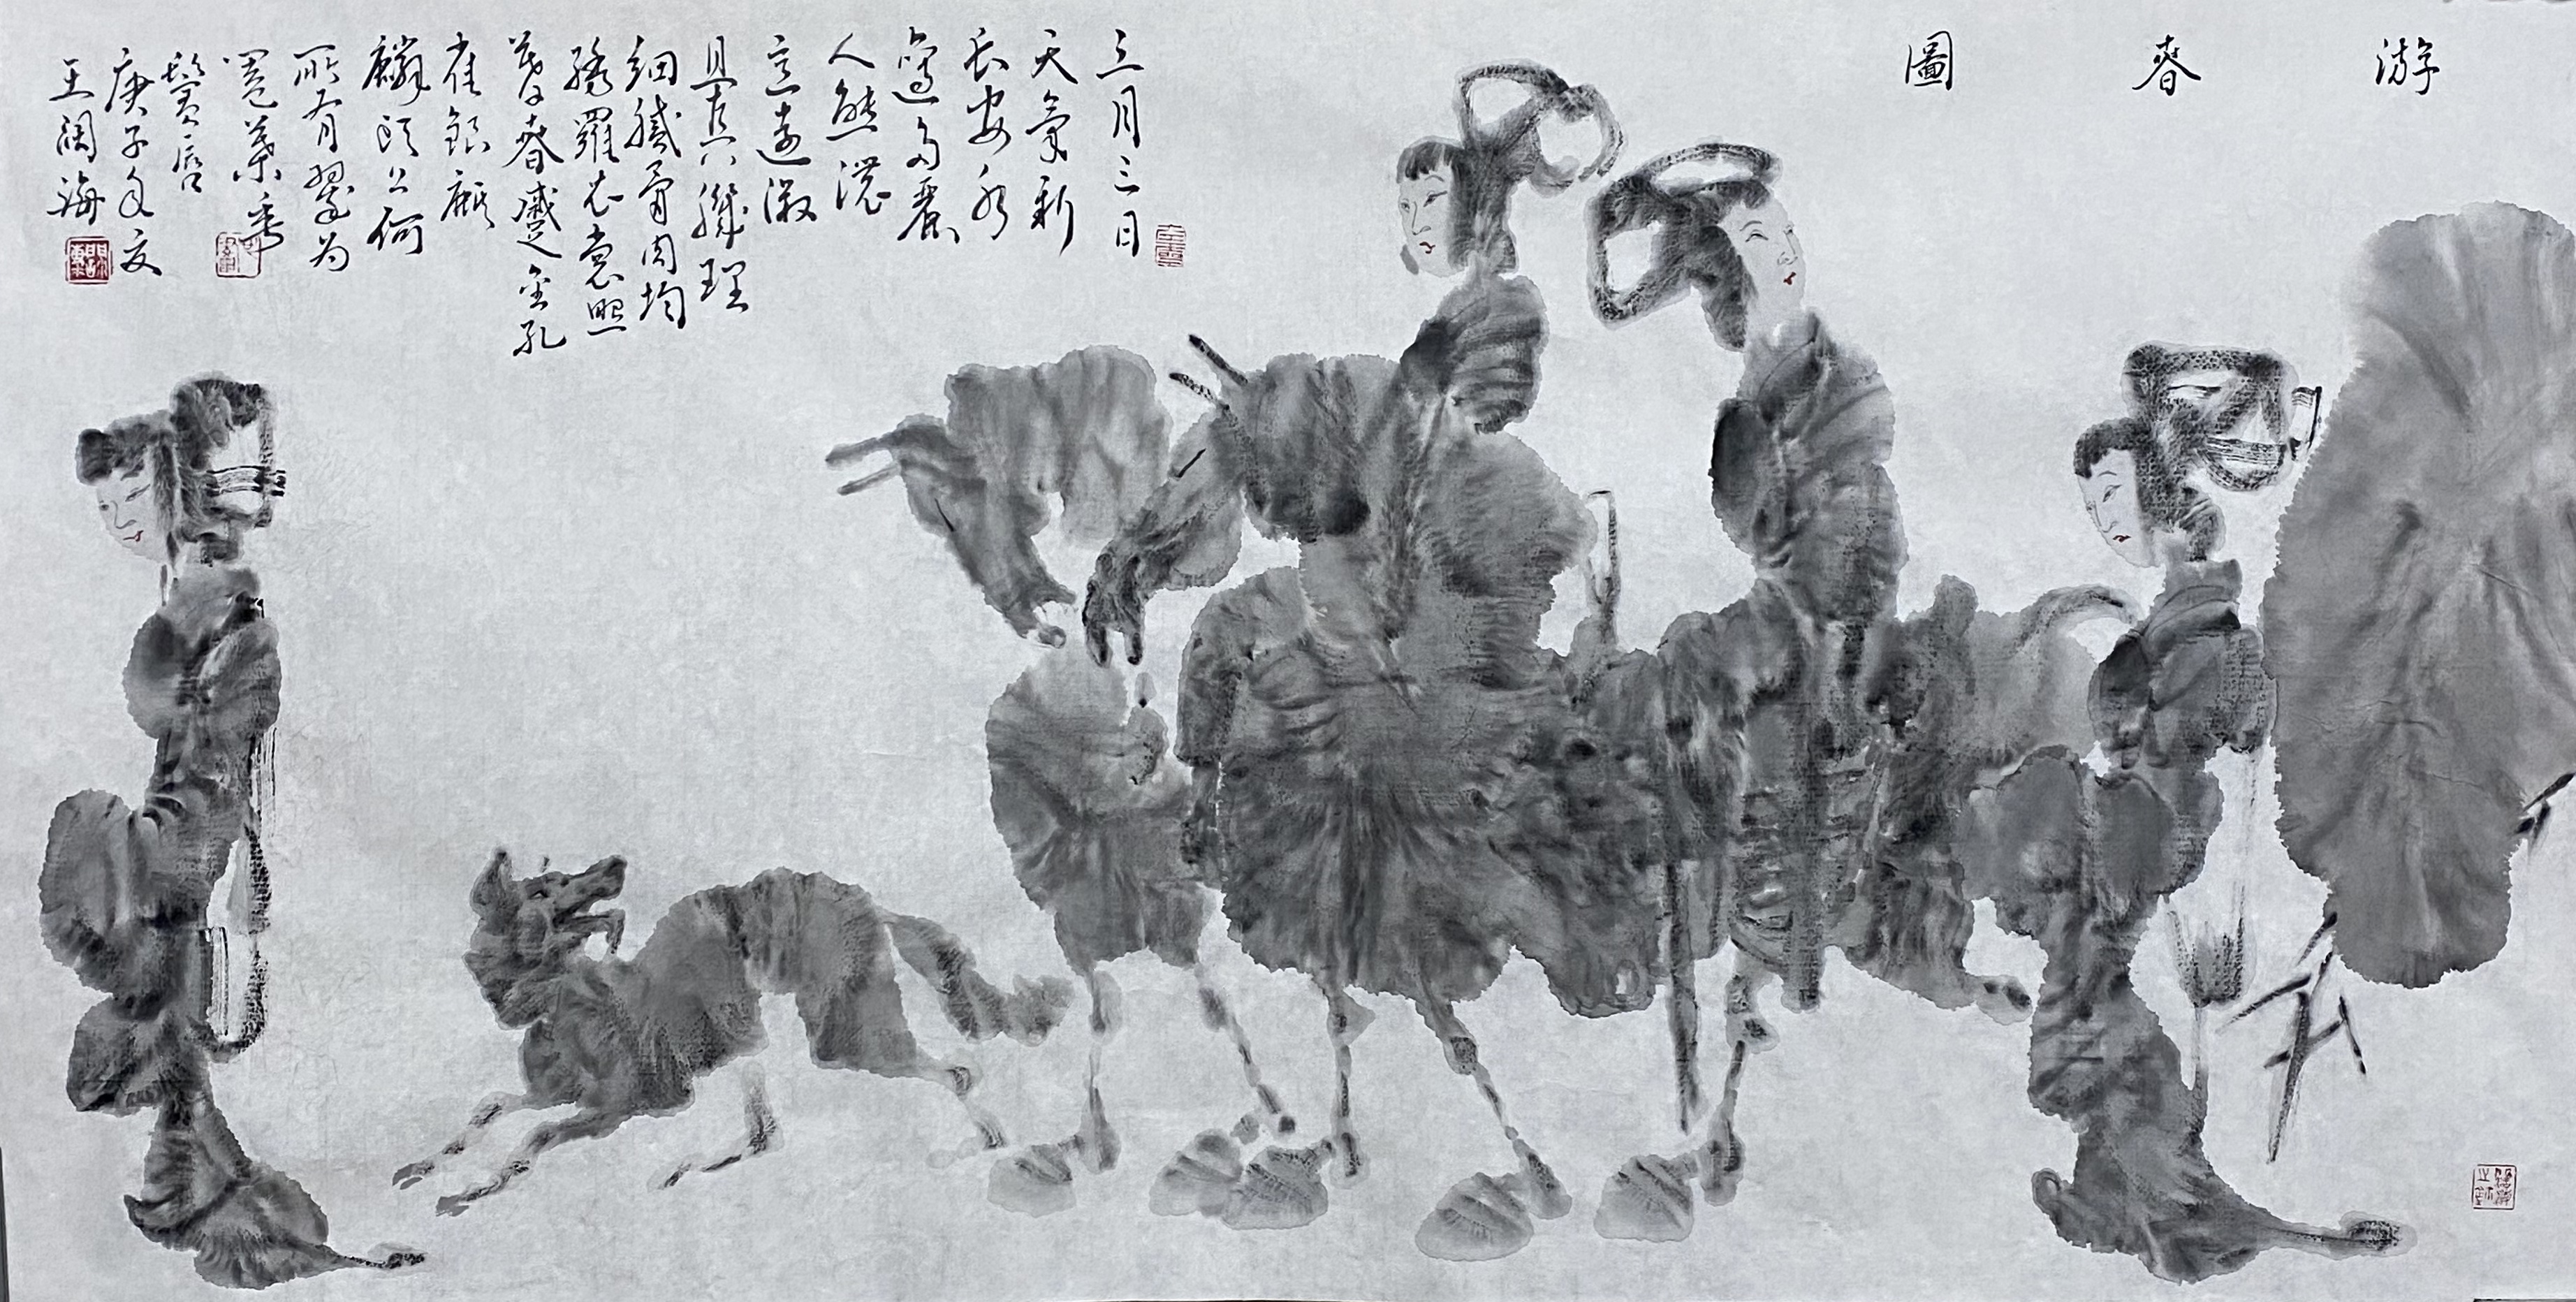 游春圖
三月三日
天氣新
長安水
邊多麗
人態濃
意遠淑
且真肌理
細膩骨肉均
繡羅衣裳照
暮春蹙金孔
雀銀麒
麟頭上何
所有翠為
葉垂
鬢唇
庚子
王闊海